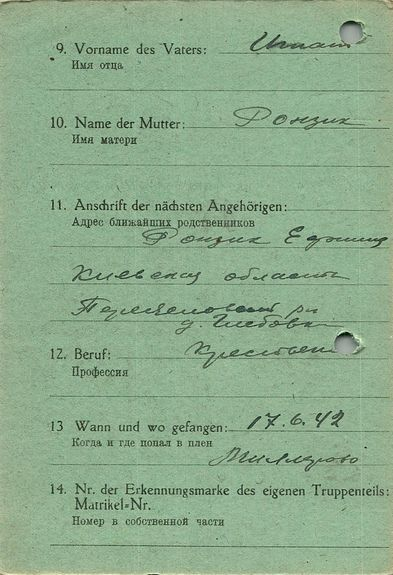 9. Vorname des Vaters: Игнат
Имя отца
10. Name der Mutter: Ронзик
Имя матери
11. Anschrift der nächsten Angehörigen:
Адрес ближайших родственников
Ронзик
Киевская область
д. Глебовка
12. Beruf:
Профессия
13 Wann und wo gefangen: 17.6.42
Когда и где попал в плен
Миллерово
14. Nr. der Erkennungsmarke des eigenen Truppenteils:
Matrikel=Nr.
Номер в собственной части